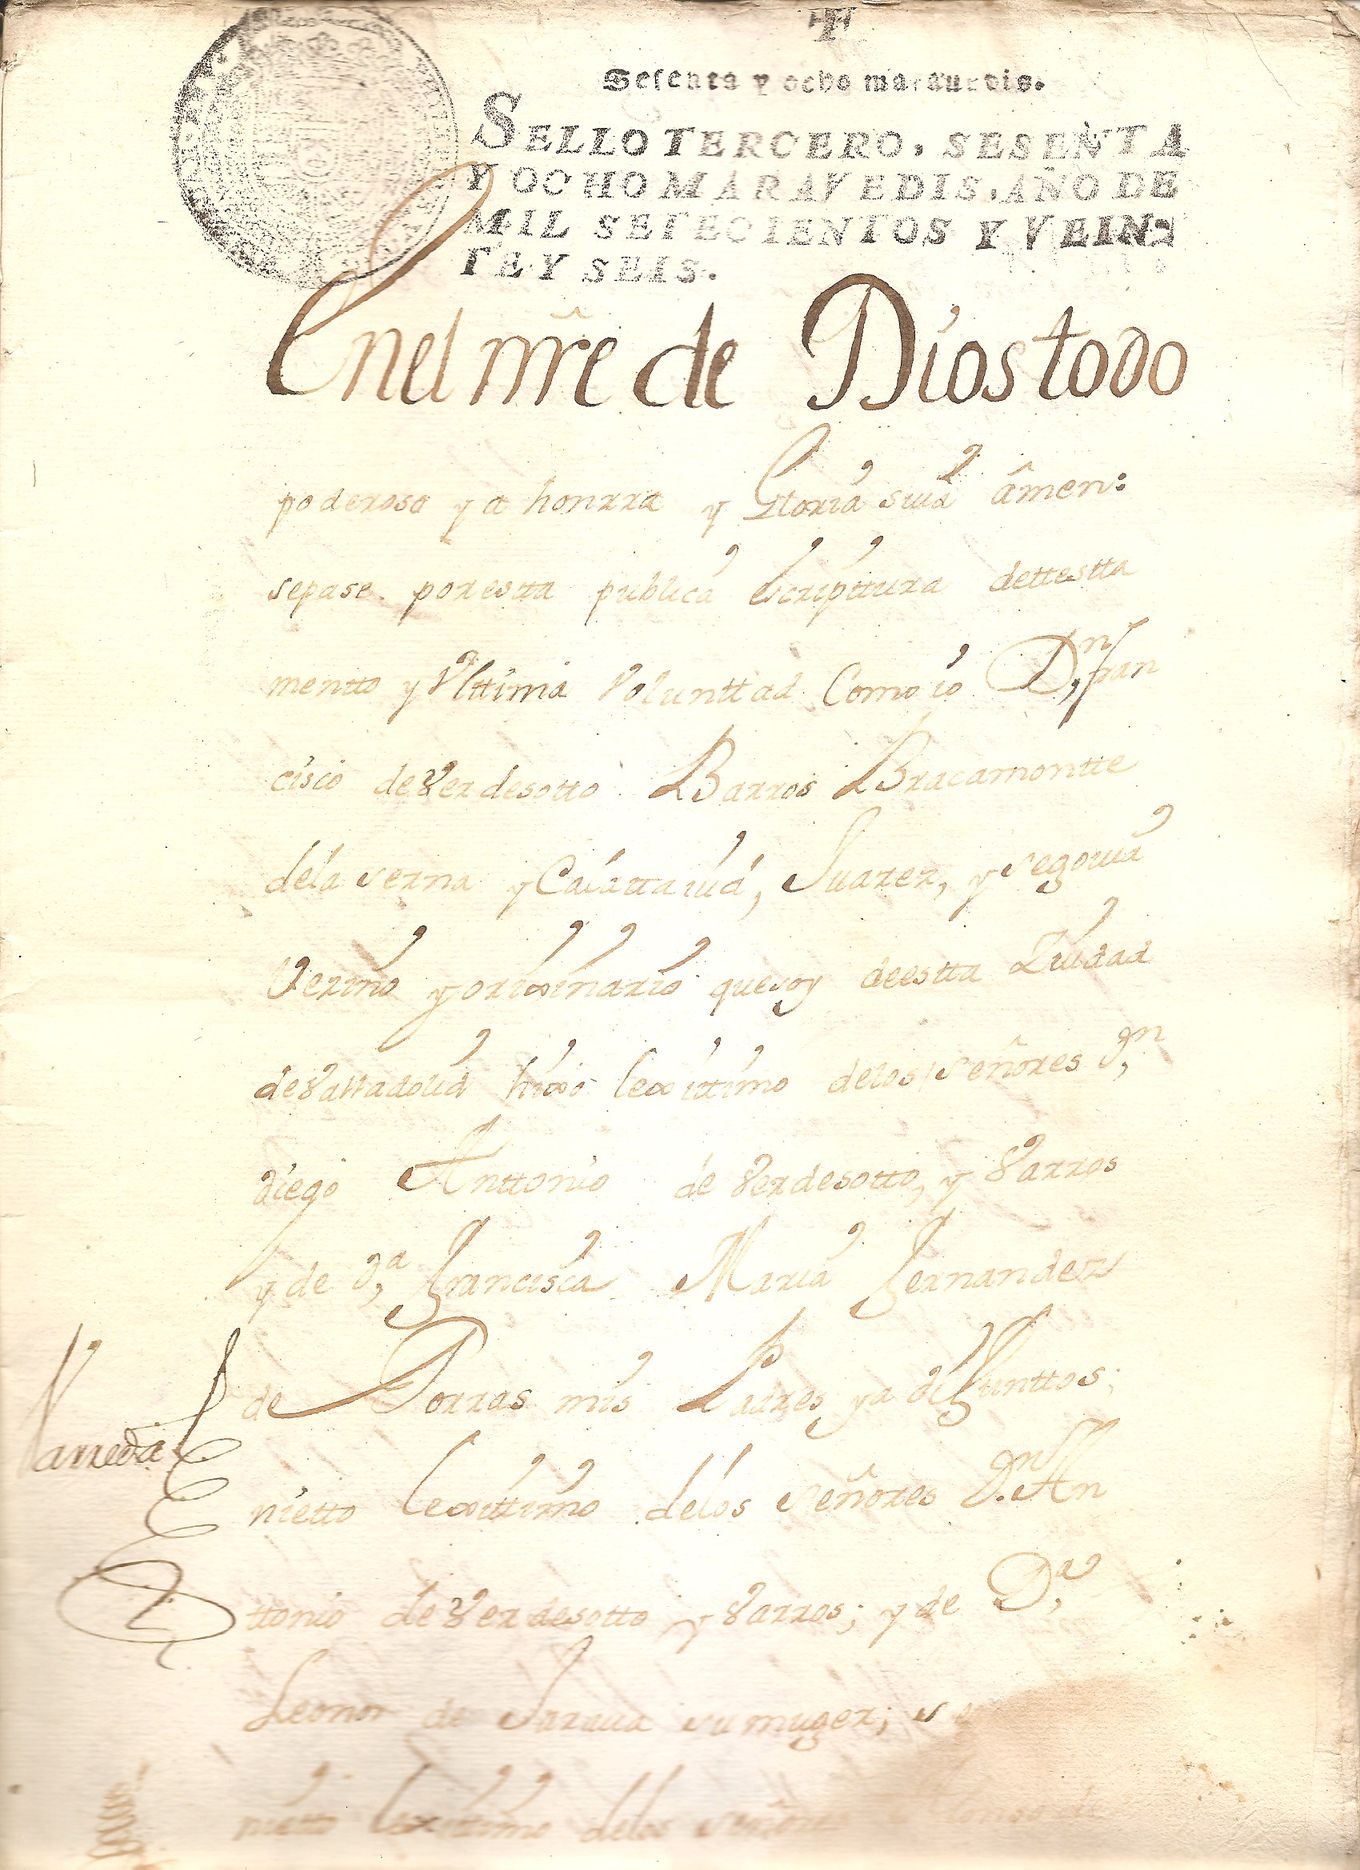 Sesenta y ocho marauedis.
SELLO TERCERO, SESENTA
Y OCHO MARAVEDIS, AÑO DE
MIL SETECIENTOS Y VEIN-
TE Y SEIS.
En el nr̃e de Dios todo
poderoso y a honrra y Gloria suia âmen:
sepase por estta publica escripttura dettestta
mentto y Vlttima Volunttad Como io Dn, fran
cisco de Verdesotto Barros Bracamontte
dela serna y Calattaiud, Suarez, y segouia
Vezino y orixinario que soy de estta Ziudad
de Valladolid hixo lexittimo delos señores Dn,
diego Anttonio de Verdesotto, y Varros
y de Da, francisca Maria fernandez
de Torres mis Padres ya difunttos;
nietto lexittimo delos señores Dn. An
ttonio de Verdesotto y Varros; y de Da,
Leonor de Sarauia su muger; se
nietto lexittimo delos señores Alonso de
Varreda